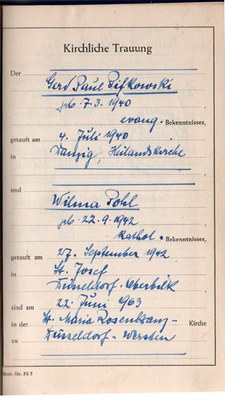 Kirchliche Trauung
Der
Gerd Paul Pifkowski
geb. 7.3. 1940
evang. Bekenntnisses,
getauft am 4. Juli 1940
in Danzig, Heilandskirche
und
Wilma Pohl
geb. 22.9.1942
kathol. Bekenntnisses,
getauft am 27. September 1942
in St. Josef
Düsseldorf-Oberbilk
sind am 22. Juni 1963
in der St. Maria Rosenkranz- Kirche
zu Düsseldorf-Wersten